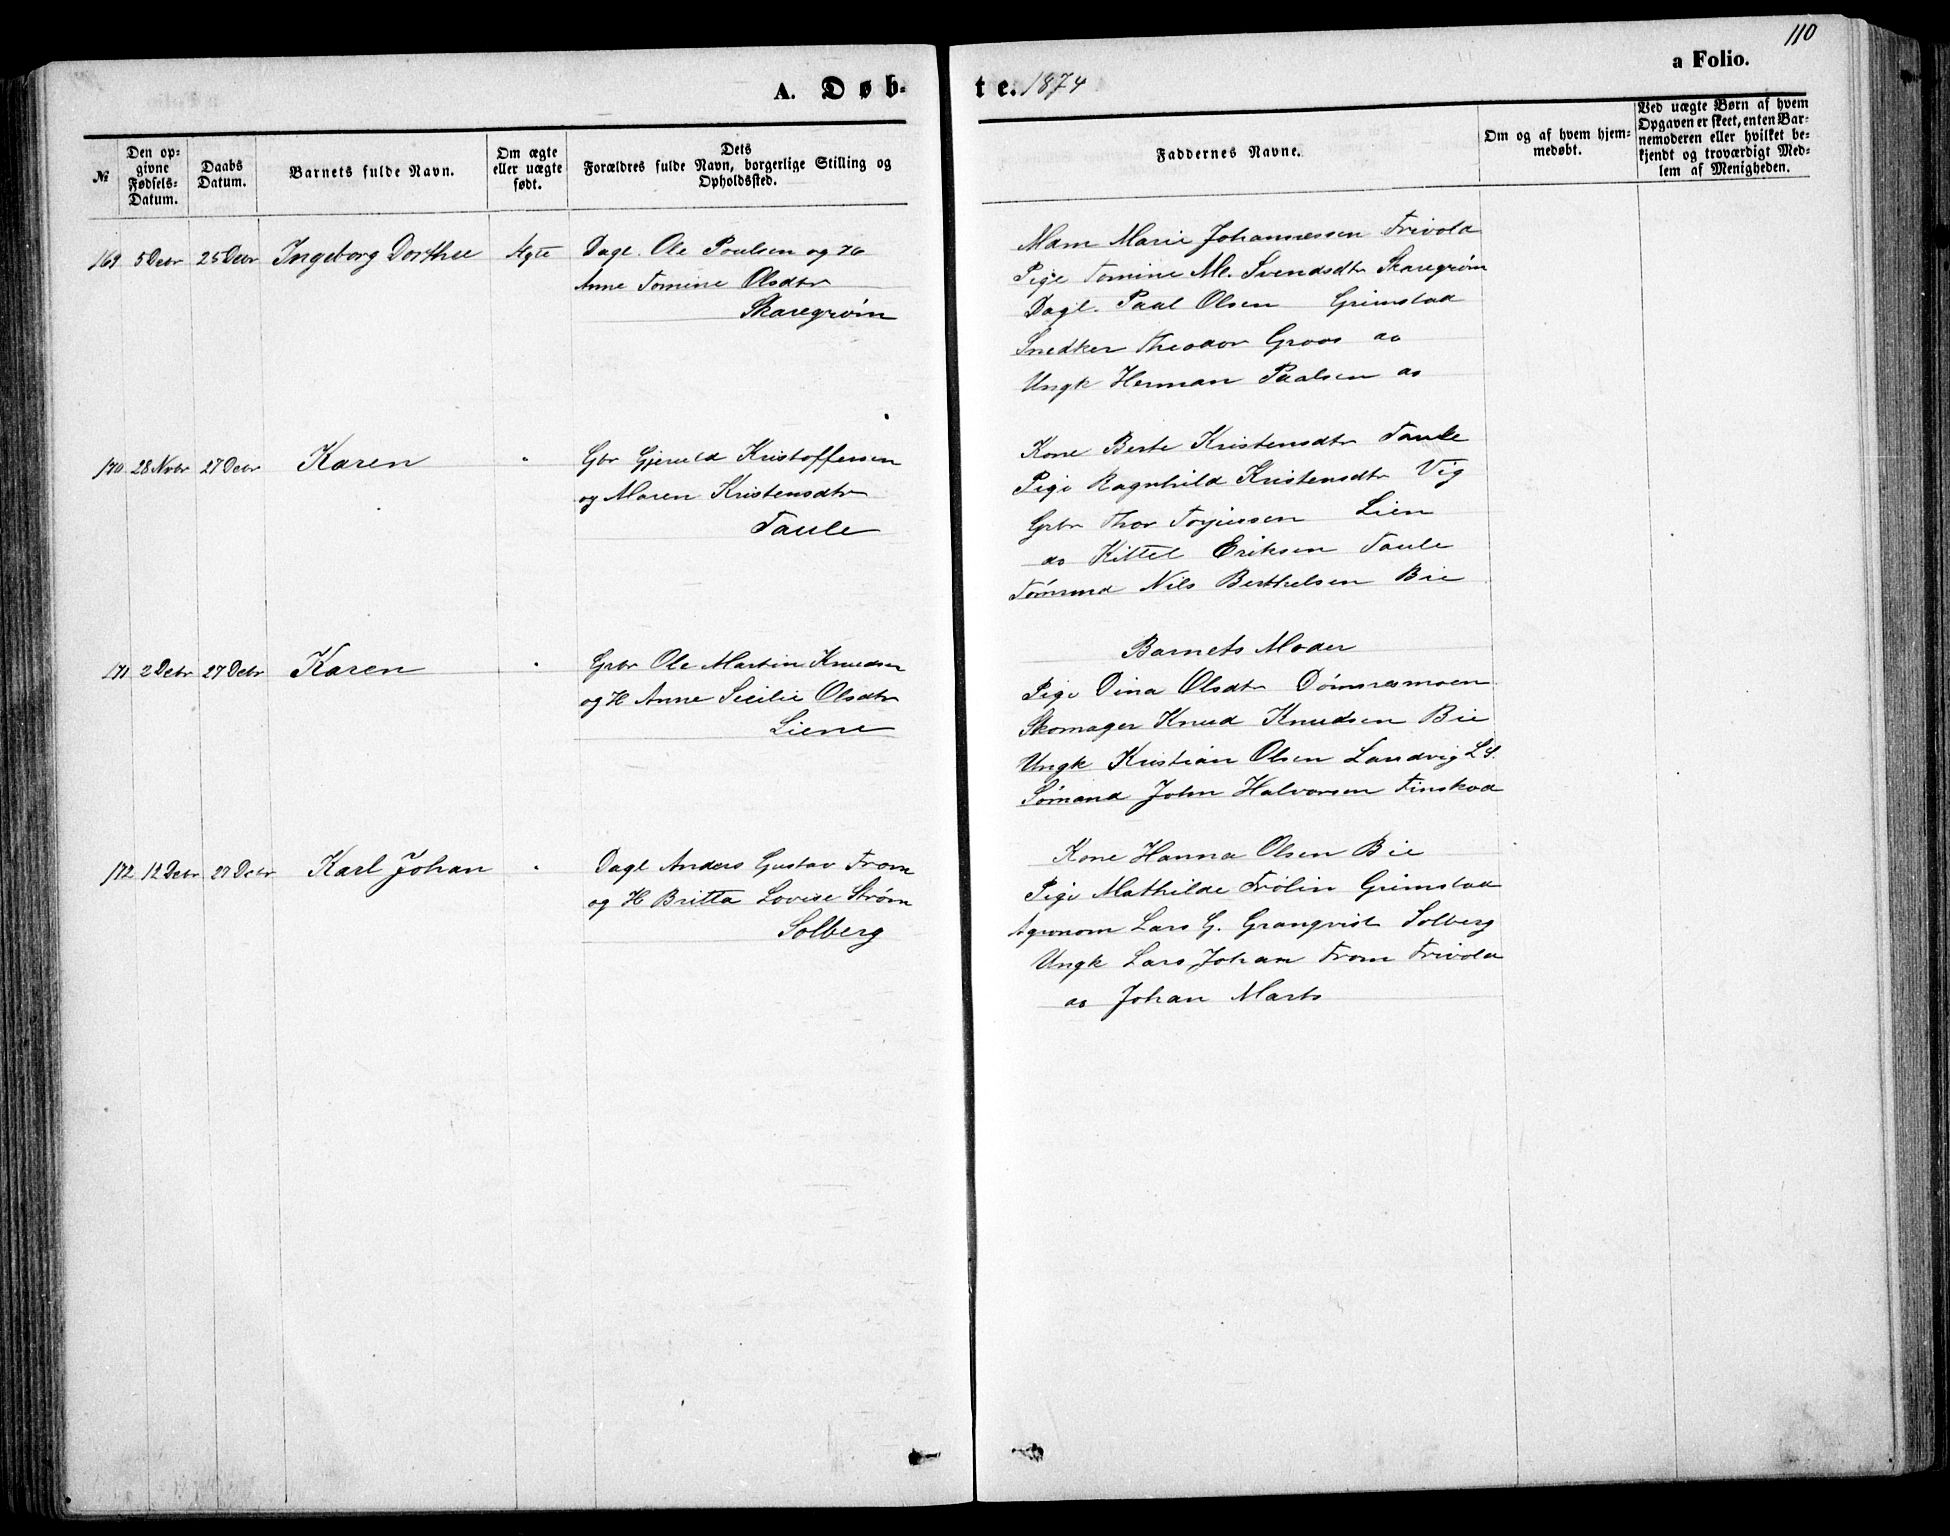 110
a Folio.
A. Døb-
te. 1874
№
Den op-
givne
Fødsels-
Datum.
Daabs
Datum.
Barnets fulde Navn.
Om ægte
eller uægte
født.
Dets
Forældres fulde Navn, borgerlige Stilling og
Opholdssted.
Faddernes Navne.
Om og af hvem hjem-
medøbt.
Ved uægte Børn af hvem
Opgaven er skeet, enten Bar-
nemoderen eller hvilket be-
kjendt og troværdigt Med-
lem af Menigheden.
169 5 Debr 25 Debr Ingeborg Dorthea Ægte Dagl. Ole Poulsen og H
Anne Tomine Olsdtr
Skaregrøm
Mam Marie Johannessen Frivold
Pige Tomine M. Svendsdtr Skaregrøm
Dagl. Paal Olsen Grimstad
Snedker Theodor Groos do
Ungk Herman Paalsen do
170 28 Novbr 27 Debr Karen " Gbr Gjeruld Kristoffersen
og Maren Kristensdtr
Taule
Kone Berte Kristensdtr Taule
Pige Ragnhild Kristensdtr Vig
Grbr Thor Torjussen Lien
do Kittel Eriksen Taule
Tømmd Nils Berthelsen Bie
171 2 Debr 27 Debr Karen " Grbr Ole Martin Knudsen
og H Anne Secilie Olsdtr
Liene
Barnets Moder
Pige Dina Olsdtr Dømnesmoen
Skomager Knud Knudsen Bie
Ungk Kristian Olsen Landvig LS.
Sømand John Halvorsen Finskod
172 12 Debr 27 Debr Karl Johan " Dagl Anders Gustav From
og H Britta Lovise Strøm
Solberg
Kone Hanna Olsen Bie
Pige Mathilde Frølin Grimstad
Agronom Lars G. Granqvist Solberg
Ungk Lars Johan From Frivold
do Johan Marts